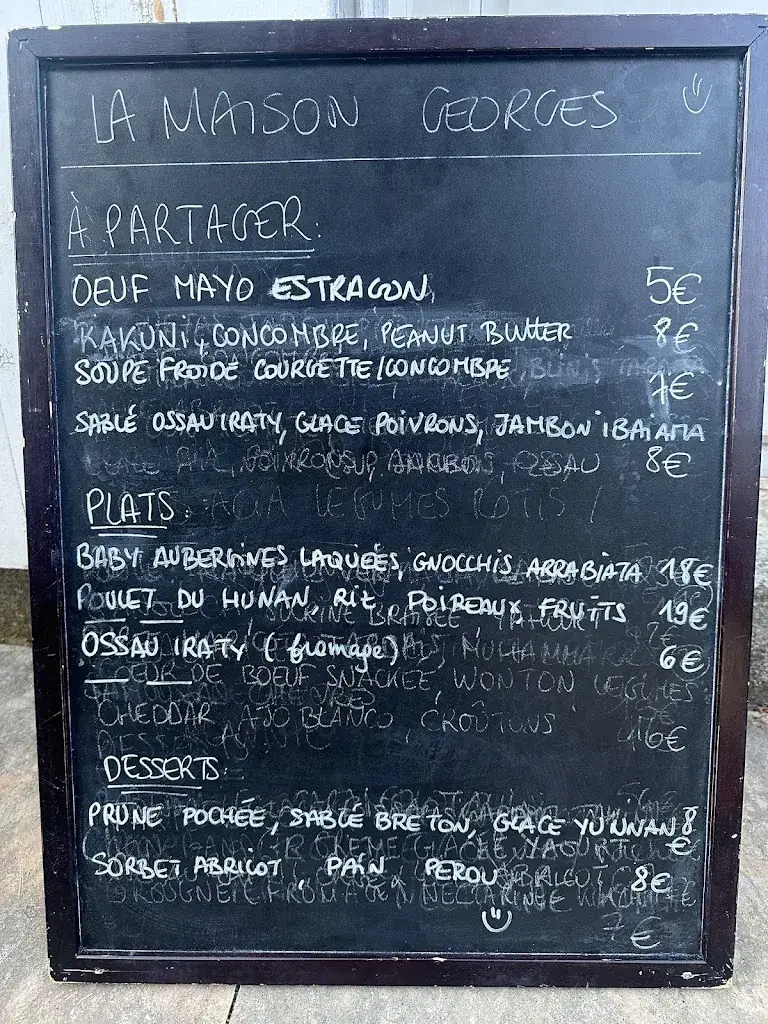 LA MAISON GEORGES
À PARTAGER:
OEUF MAYO ESTRAGON 5€
KAKUNI, CONCOMBRE, PEANUT BUTTER 8€
SOUPE FROIDE COURGETTE/CONCOMBRE 7€
SABLÉ OSSAU IRATY, GLACE POIVRONS, JAMBON IBAIAMA
8€
PLATS:
BABY AUBERGINES LAQUÉES, GNOCCHIS ARRABIATA 18€
POULET DU HUNAN, RIZ, POIREAUX FRUITS 19€
OSSAU IRATY (fromage) 6€
COEUR DE BOEUF SNACKÉE, WONTON LEGUMES
CHEDDAR AJO BLANCO, CROÛTONS 16€
DESSERTS:
PRUNE POCHÉE, SABLÉ BRETON, GLACE YUNNAN 8
€
SORBET ABRICOT, PAIN PEROU 8€
7€